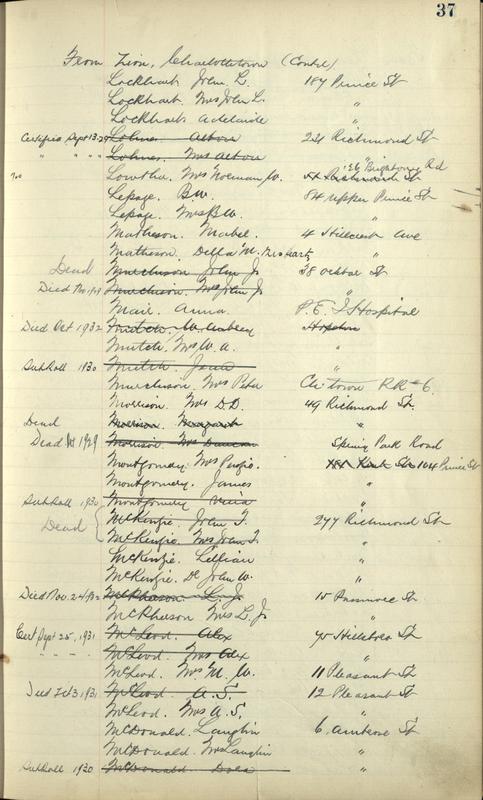 37
From Zion, Charlottetown (Contd)
Lockhart John L. 187 Prince St
Lockhart. Mrs John L. "
Lockhart Adelaide "
Certifie Sept 13-29 Lohnes Alton 231 Richmond St
" " " " Lohnes. Mrs Alton
Lowther Mrs Norman W. 136 Brighton Rd
Lepage. B.W. 84 upper Prince St
Lepage. Mrs B.W. "
Matheson. Mabel. 4 Hillcrest Ave
Matheson. Della M. "
Dead Murchison John J. 38 St
Died Nov 1929 Murchison. Mrs John J. "
Mair. Anna. P. E. I Hospital
Died Oct 1932 Mutch. W.
Mutch. Mrs W. A. "
Sub Roll 1930 Mutch. "
Murchison. Mrs Peter Ch'town RR #6.
Morrison. Mrs D.D. 49 Richmond St.
Dead Morrison. Margaret "
Dead 1929 Morrison Mrs Duncan Spring Park Road
Montgomery. Mrs 104 Prince St
Montgomery. James "
Sub Roll 1930 Montgomery "
Dead McKenzie. John T. 277 Richmond St
McKenzie. Mrs John T. "
McKenzie. Lillian "
McKenzie. Dr John W. "
Died Nov. 24 McPherson L. J. 15 Passmore St
McPherson Mrs L. J. "
Cert Sept 25, 1931 McLeod. Alex 75 Hillsboro St
" - " - McLeod. Mrs Alex "
McLeod. Mrs M. W. 11 Pleasant St
Died Feb 3, 1931 McLeod. A. S. 12 Pleasant St
McLeod. Mrs A. S. "
McDonald. Lauglin 6. St
McDonald. Mrs Lauglin "
Sub Roll 1930 McDonald "